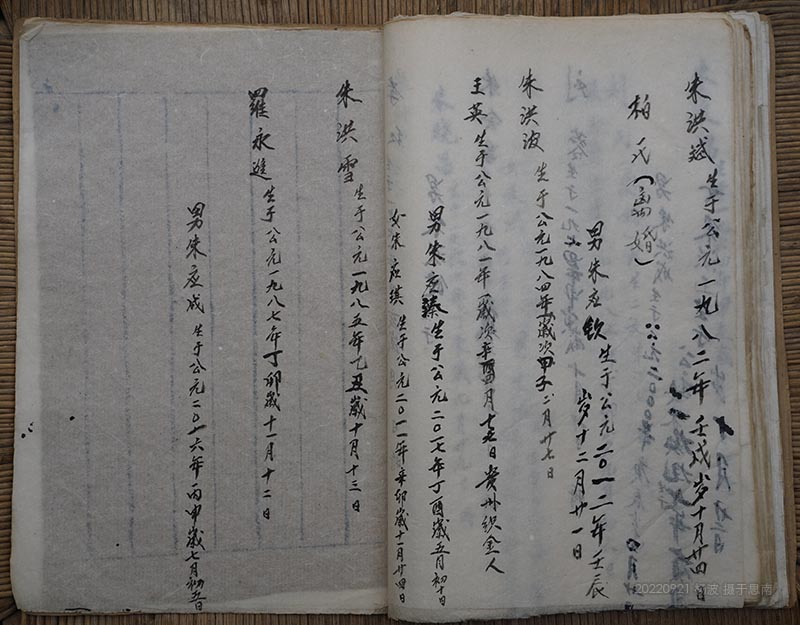 朱洪斌 生于公元一九八二年壬戌岁十月廿四日
柏氏（离婚）
男朱应钦 生于公元二〇一二年壬辰
岁十二月廿一日
朱洪波 生于公元一九八四年歲次甲子二月廿七日
王英 生于公元一九八一年歲次辛酉月十五日 贵州织金人
男朱应臻 生于公元二〇一七年丁酉歲五月初十日
女朱应琪 生于公元二〇一一年辛卯歲十一月廿四日
朱洪雪 生于公元一九八五年乙丑歲十月十三日
羅永進 生于公元一九八七年丁卯歲十一月十二日
男朱应成 生于公元二〇一六年丙申歲七月初五日
20220921 波 摄于思南